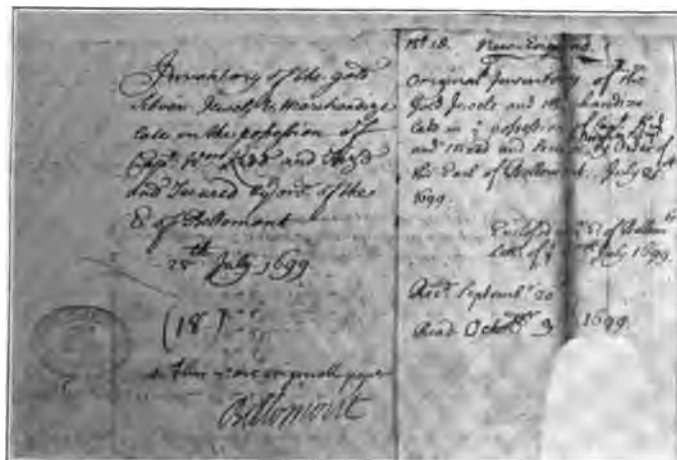 Inventory of the gold
Silver, Jewels, & Merchandize
late in the possession of
Capt. Wm. Kidd and
and Secured by ordr. of the
E of Bellomont
25th July 1699
(18)
originall paper
Bellomont
No. 18. New England.
Original Inventory of the
Gold Jewels and Merchandize
late in ye possession of Capt. Kid
and and Secured by Order of
the Earl of Bellomont. July 25th
1699.
Enclosed E: of Bellomt
Lettr. of ye July 1699.
Recd. Septembr. 20
Read Octobr. 3 1699